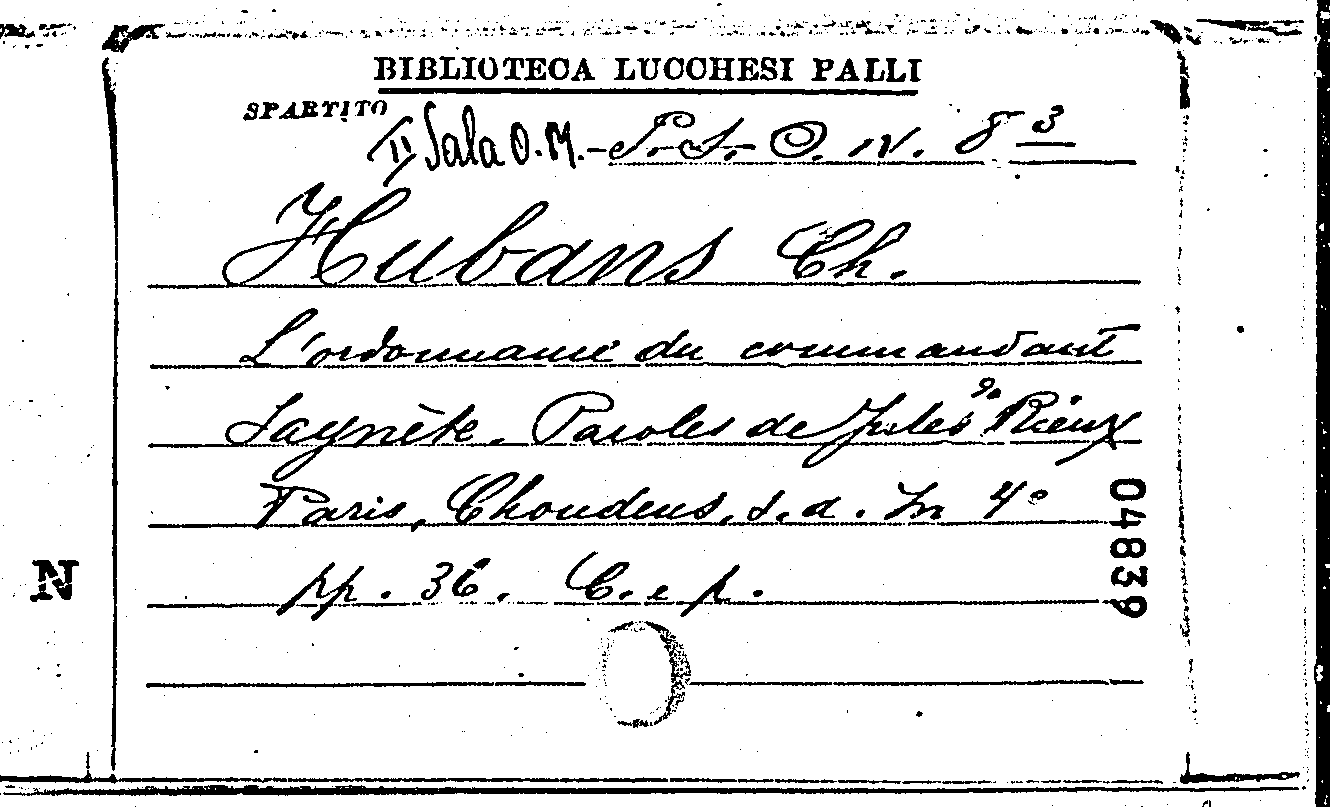 BIBLIOTECA LUCCHESI PALLI
SPARTITO
II Sala O.M. - P. S. O. IV. 8 3
Hubans Ch.
L'ordonnance du commandant
Saynète. Paroles de Jules de Rieux
Paris, Choudens, s. d. In 4°
pp. 36. C. e p.
04839
N